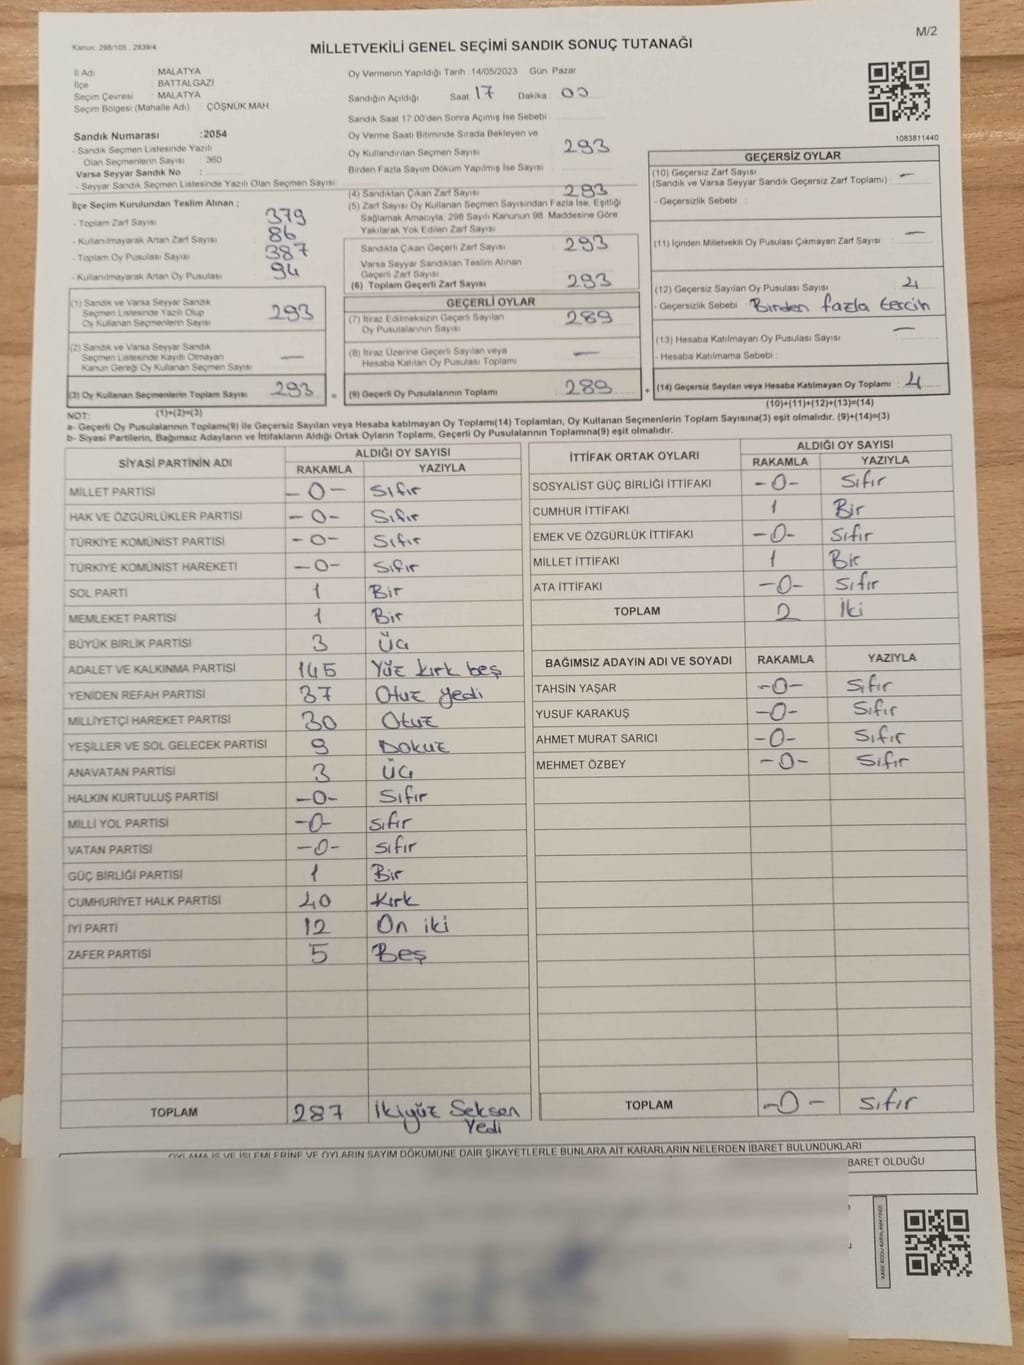 M/2
Kanun: 298/105 , 2839/4
MİLLETVEKİLİ GENEL SEÇİMİ SANDIK SONUÇ TUTANAĞI
İl Adı : MALATYA
İlçe : BATTALGAZİ
Seçim Çevresi : MALATYA
Seçim Bölgesi (Mahalle Adı) : ÇÖŞNÜK MAH
Sandık Numarası :2054
- Sandık Seçmen Listesinde Yazılı
Olan Seçmenlerin Sayısı : 360
Varsa Seyyar Sandık No :
- Seyyar Sandık Seçmen Listesinde Yazılı Olan Seçmen Sayısı :
İlçe Seçim Kurulundan Teslim Alınan ;
- Toplam Zarf Sayısı 379
- Kullanılmayarak Artan Zarf Sayısı 86
- Toplam Oy Pusulası Sayısı 387
- Kullanılmayarak Artan Oy Pusulası 94
(1) Sandık ve Varsa Seyyar Sandık
Seçmen Listesinde Yazılı Olup
Oy Kullanan Seçmenlerin Sayısı 293
(2) Sandık ve Varsa Seyyar Sandık
Seçmen Listesinde Kayıtlı Olmayan
Kanun Gereği Oy Kullanan Seçmen Sayısı —
(3) Oy Kullanan Seçmenlerin Toplam Sayısı 293
(1)+(2)=(3)
Oy Vermenin Yapıldığı Tarih 14/05/2023 Gün: Pazar
Sandığın Açıldığı Saat 17 Dakika 00
Sandık Saat 17:00'den Sonra Açılmış İse Sebebi
Oy Verme Saati Bitiminde Sırada Bekleyen ve
Oy Kullandırılan Seçmen Sayısı 293
Birden Fazla Sayım Döküm Yapılmış İse Sayısı
(4) Sandıktan Çıkan Zarf Sayısı 293
(5) Zarf Sayısı Oy Kullanan Seçmen Sayısından Fazla İse, Eşitliği
Sağlamak Amacıyla, 298 Sayılı Kanunun 98. Maddesine Göre
Yakılarak Yok Edilen Zarf Sayısı
Sandıkta Çıkan Geçerli Zarf Sayısı 293
Varsa Seyyar Sandıktan Teslim Alınan
Geçerli Zarf Sayısı
(6) Toplam Geçerli Zarf Sayısı 293
GEÇERLİ OYLAR
(7) İtiraz Edilmeksizin Geçerli Sayılan
Oy Pusulalarının Sayısı 289
(8) İtiraz Üzerine Geçerli Sayılan veya
Hesaba Katılan Oy Pusulası Toplamı —
= (9) Geçerli Oy Pusulalarının Toplamı 289 +
1083811440
GEÇERSİZ OYLAR
(10) Geçersiz Zarf Sayısı
(Sandık ve Varsa Seyyar Sandık Geçersiz Zarf Toplamı) —
- Geçersizlik Sebebi :
(11) İçinden Milletvekili Oy Pusulası Çıkmayan Zarf Sayısı —
(12) Geçersiz Sayılan Oy Pusulası Sayısı 4
- Geçersizlik Sebebi : Birden fazla tercih
(13) Hesaba Katılmayan Oy Pusulası Sayısı —
- Hesaba Katılmama Sebebi :
(14) Geçersiz Sayılan veya Hesaba Katılmayan Oy Toplamı 4
(10)+(11)+(12)+(13)=(14)
NOT:
a- Geçerli Oy Pusulalarının Toplamı(9) ile Geçersiz Sayılan veya Hesaba katılmayan Oy Toplamı(14) Toplamları, Oy Kullanan Seçmenlerin Toplam Sayısına(3) eşit olmalıdır. (9)+(14)=(3)
b- Siyasi Partilerin, Bağımsız Adayların ve İttifakların Aldığı Ortak Oyların Toplamı, Geçerli Oy Pusulalarının Toplamına(9) eşit olmalıdır.
SİYASİ PARTİNİN ADI ALDIĞI OY SAYISI
RAKAMLA YAZIYLA
MİLLET PARTİSİ -0- Sıfır
HAK VE ÖZGÜRLÜKLER PARTİSİ -0- Sıfır
TÜRKİYE KOMÜNİST PARTİSİ -0- Sıfır
TÜRKİYE KOMÜNİST HAREKETİ -0- Sıfır
SOL PARTİ 1 Bir
MEMLEKET PARTİSİ 1 Bir
BÜYÜK BİRLİK PARTİSİ 3 Üç
ADALET VE KALKINMA PARTİSİ 145 Yüz kırk beş
YENİDEN REFAH PARTİSİ 37 Otuz yedi
MİLLİYETÇİ HAREKET PARTİSİ 30 Otuz
YEŞİLLER VE SOL GELECEK PARTİSİ 9 Dokuz
ANAVATAN PARTİSİ 3 Üç
HALKIN KURTULUŞ PARTİSİ -0- Sıfır
MİLLİ YOL PARTİSİ -0- Sıfır
VATAN PARTİSİ -0- Sıfır
GÜÇ BİRLİĞİ PARTİSİ 1 Bir
CUMHURİYET HALK PARTİSİ 40 Kırk
İYİ PARTİ 12 On iki
ZAFER PARTİSİ 5 Beş
TOPLAM 287 İkiyüz Seksen
Yedi
İTTİFAK ORTAK OYLARI ALDIĞI OY SAYISI
RAKAMLA YAZIYLA
SOSYALİST GÜÇ BİRLİĞİ İTTİFAKI -0- Sıfır
CUMHUR İTTİFAKI 1 Bir
EMEK VE ÖZGÜRLÜK İTTİFAKI -0- Sıfır
MİLLET İTTİFAKI 1 Bir
ATA İTTİFAKI -0- Sıfır
TOPLAM 2 İki
BAĞIMSIZ ADAYIN ADI VE SOYADI RAKAMLA YAZIYLA
TAHSİN YAŞAR -0- Sıfır
YUSUF KARAKUŞ -0- Sıfır
AHMET MURAT SARICI -0- Sıfır
MEHMET ÖZBEY -0- Sıfır
TOPLAM -0- Sıfır
OYLAMA İŞ VE İŞLEMLERİNE VE OYLARIN SAYIM DÖKÜMÜNE DAİR ŞİKAYETLERLE BUNLARA AİT KARARLARIN NELERDEN İBARET BULUNDUKLARI
BARET OLDUĞU